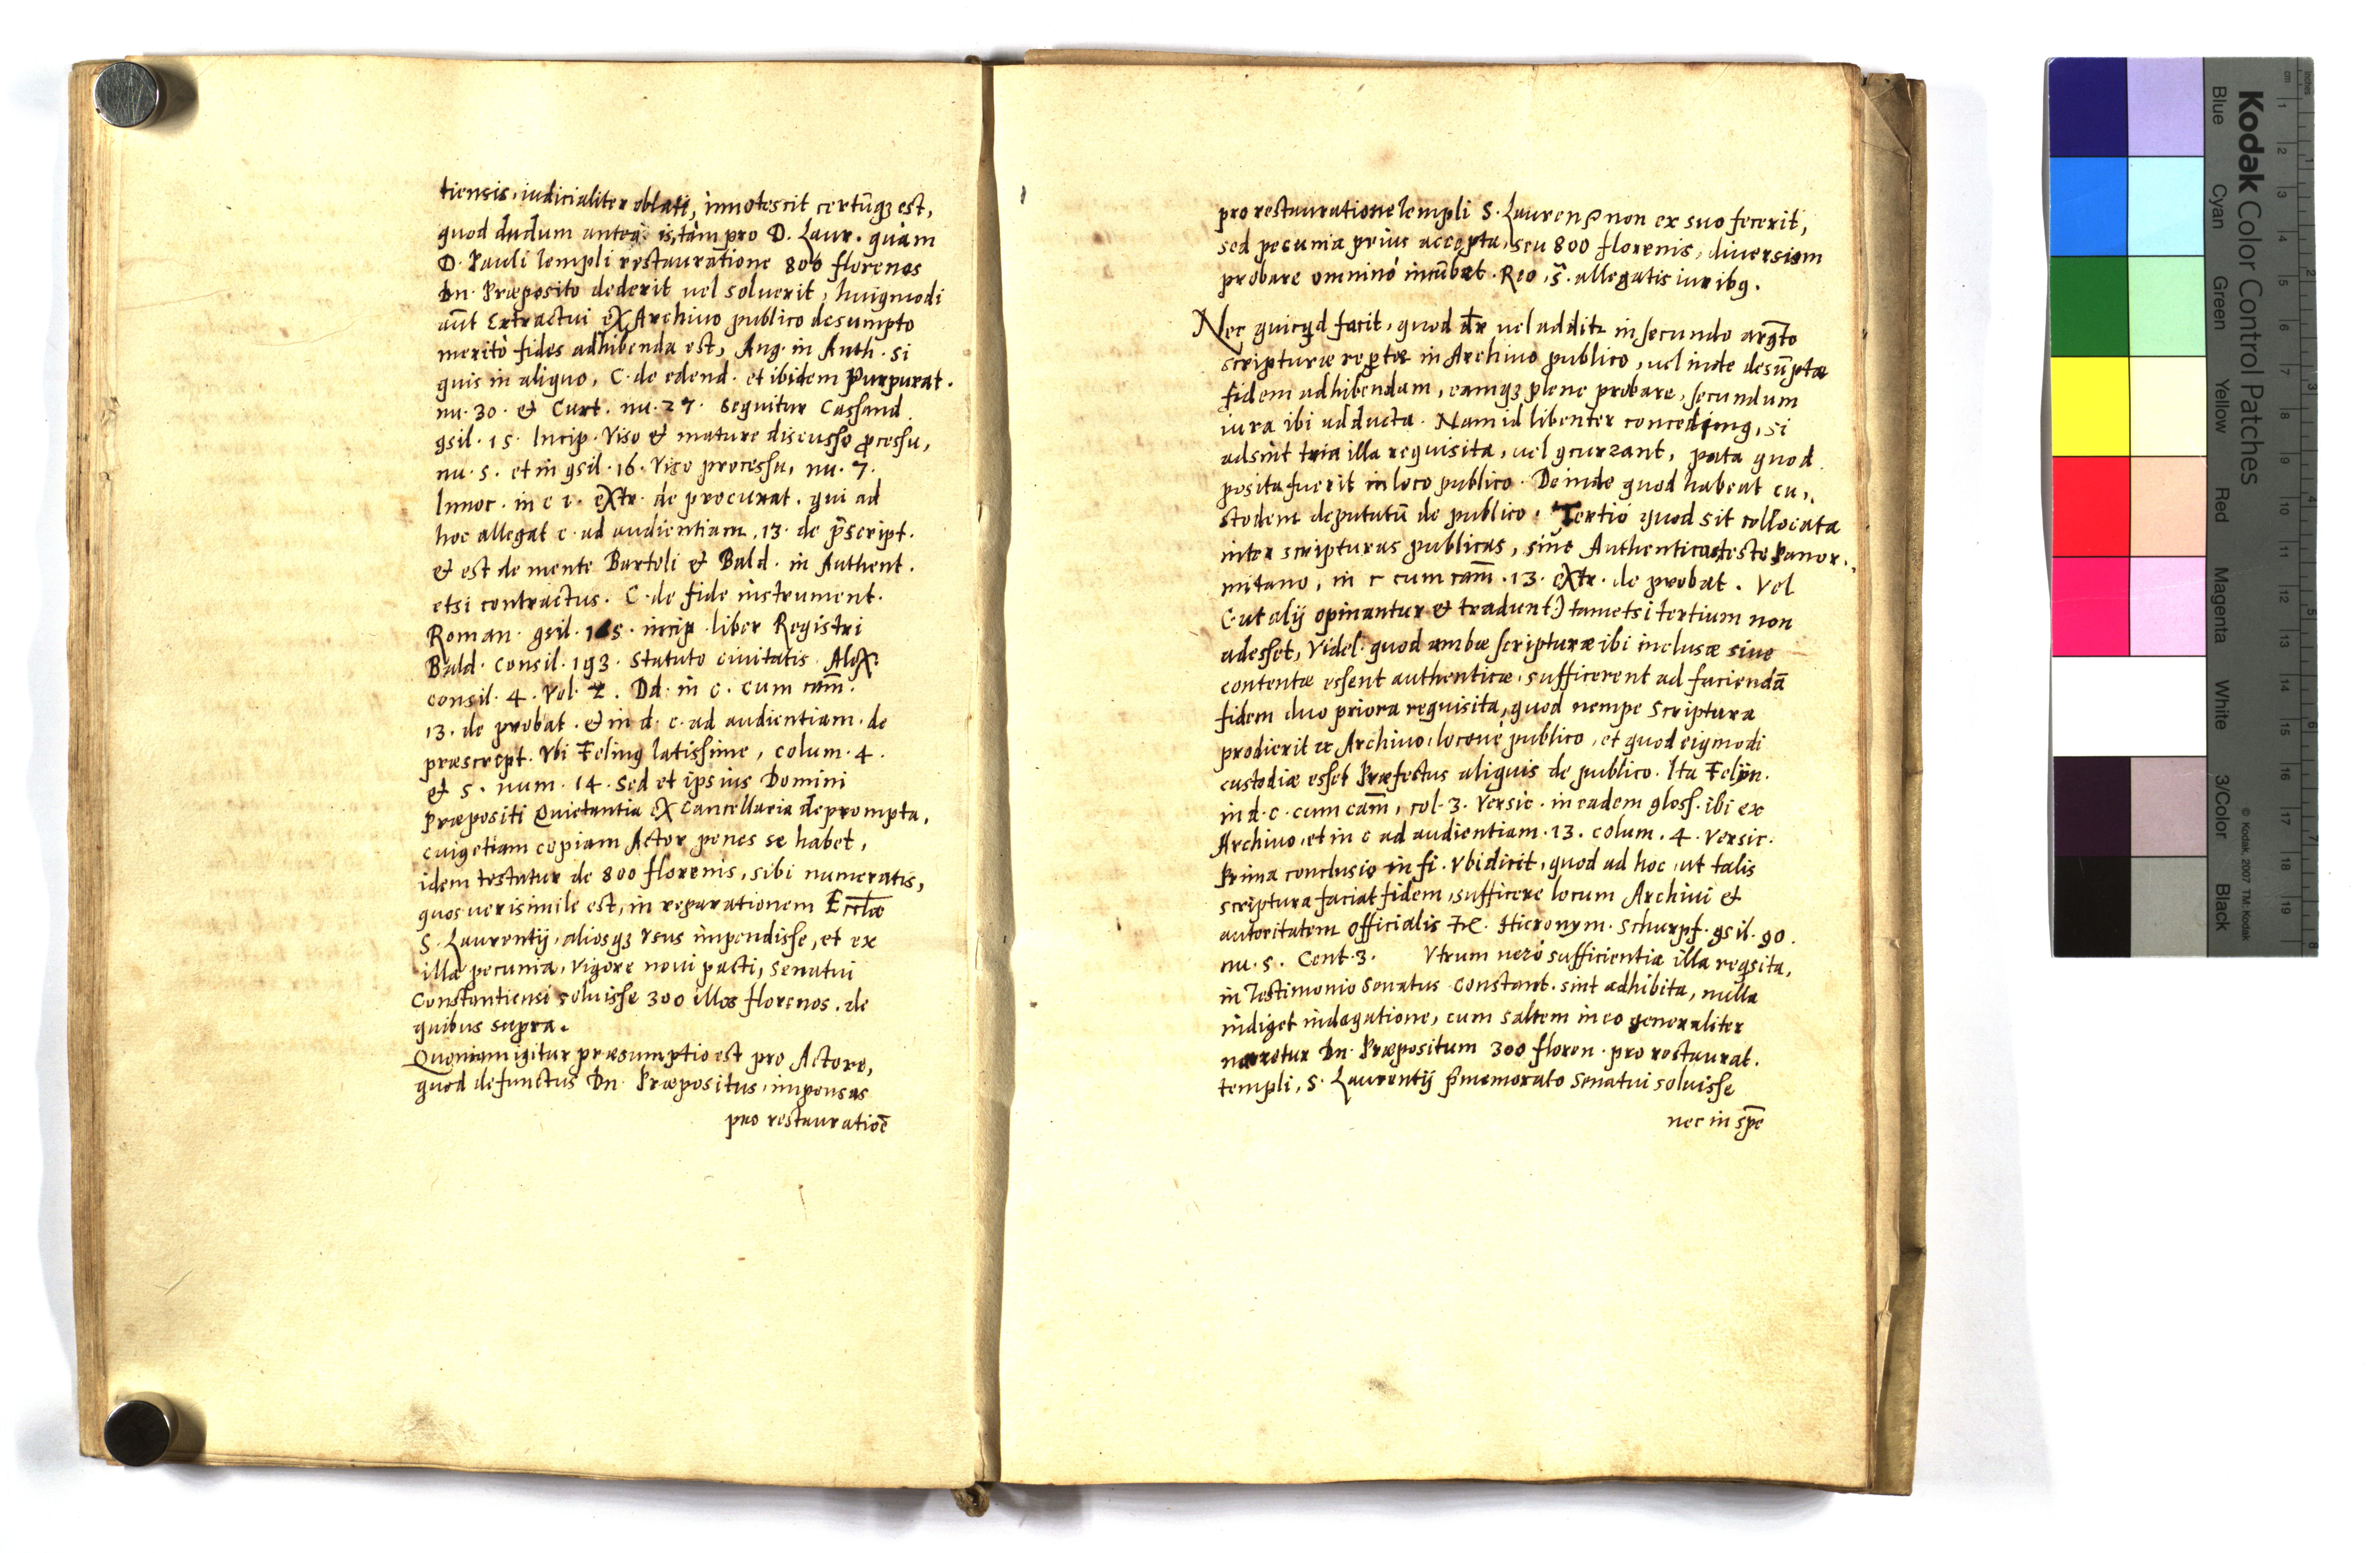 tiensis, iudicialiter oblati, innotescit certũq3 est,
quod dudum antea is, tàm pro D. Laur. quàm
D. Pauli templi restauratione 800 florenos
Dn. Præposito dederit vel soluerit, huigmodi
aũt Extractui eX Archiuo publico desumpto
meritò fides adhibenda est, Ang. in Auth. si
quis in aliquo, C. de edend. et ibidem Purpurat.
nu. 30. & Curt. nu. 27. Sequitur Cassand.
gsil. 15. Incip. Viso & mature discusso ꝓcessu,
nu. 5. et in gsil. 16. Viso processu, nu. 7.
Innoc. in c 1. eXtr. de procurat. qui ad
hoc allegat c. ad audientiam .13. de p̃script.
& est de mente Bartoli & Bald. in Authent.
etsi contractus. C. de fide instrument.
Roman. gsil. incip. liber Registri
Bald. Consil. 193. Statuto ciuitatis. AleX.
consil. 4. Vol. 2. Dd. in c. cum cam̃.
13. de probat. & in d. c. ad audientiam. de
præscript. Vbi Feling latissime, colum. 4.
& 5. num. 14. Sed et ipsius Domini
Præpositi Quietantia eX Cancellaria deprompta,
cuig etiam copiam Actor penes se habet,
idem testatur de 800 florenis, sibi numeratis,
quos verisimile est, in reparationem Eccl̃æ
S. Laurentij, aliosq3 Vsus impendisse, et ex
illa pecunia, Vigore noui pacti, Senatui
Constantiensi soluisse 300 illos florenos, de
quibus supra.
Quoniam igitur præsumptio est pro Actore,
quod defunctus Dn. Præpositus, impensas
pro restauratiõe
pro restauratione templi S. Laurenꝭ non ex suo fecerit,
sed pecunia prius accepta, seu 800 florenis, diuersum
probare omninò incũbat. Reo, s̃. allegatis iuribg.
Nec quicqd facit, quod dr̃ vel additr in secundo argt̃o
scripturæ reptæ in Archiuo publico, vel inde desũptæ
fidem adhibendam, eamq3 plene probare, secundum
iura ibi adducta. Nam id libenter concedimg, si
adsint tria illa requisita, vel gcurrant, puta quod
posita fuerit in loco publico. Deinde quod habeat cu,,
stodem deputatũ de publico. Tertiò quod sit collocata
inter scripturas publicas, siue Authenticas teste Panor,,
mitano, in c cum cam̃. 13. eXtr. de probat. Vel
(ut alij opinantur & tradunt:) tametsi tertium non
adesset, Videl. quod ambæ scripturæ ibi inclusæ siue
contentæ essent authenticæ, sufficerent ad faciendã
fidem duo priora requisita, quod nempe Scriptura
prodierit ex Archiuo, locouè publico, et quod eigmodi
custodiæ esset Præfectus aliquis de publico. Ita Felyn.
in d. c. cum cam̃, col. 3. Versic. in eadem gloss. ibi ex
Archiuo, et in c ad audientiam. 13. colum. 4. Versic.
Prima conclusio in fi. Vbi dicit, quod ad hoc, ut talis
scriptura faciat fidem, sufficere locum Archiui &
autoritatem Officialis &c. Hieronym. Schurpf. gsil. 90.
nu. 5. Cent. 3. Vtrum verò sufficientia illa reqsita,
in Testimonio Senatus Constant. sint adhibita, nulla
indiget indagatione, cum saltem in eo generaliter
narretur Dn. Præpositum 300 floren. pro restaurat.
templi, S. Laurentij p̃memorato Senatui soluisse
nec in spẽ
Kodak Color Control Patches
Blue Cyan Green Yellow Red Magenta White 3/Color Black
© Kodak, 2007 TM: Kodak
inches 1 2 3 4 5 6 7 8
cm 1 2 3 4 5 6 7 8 9 10 11 12 13 14 15 16 17 18 19